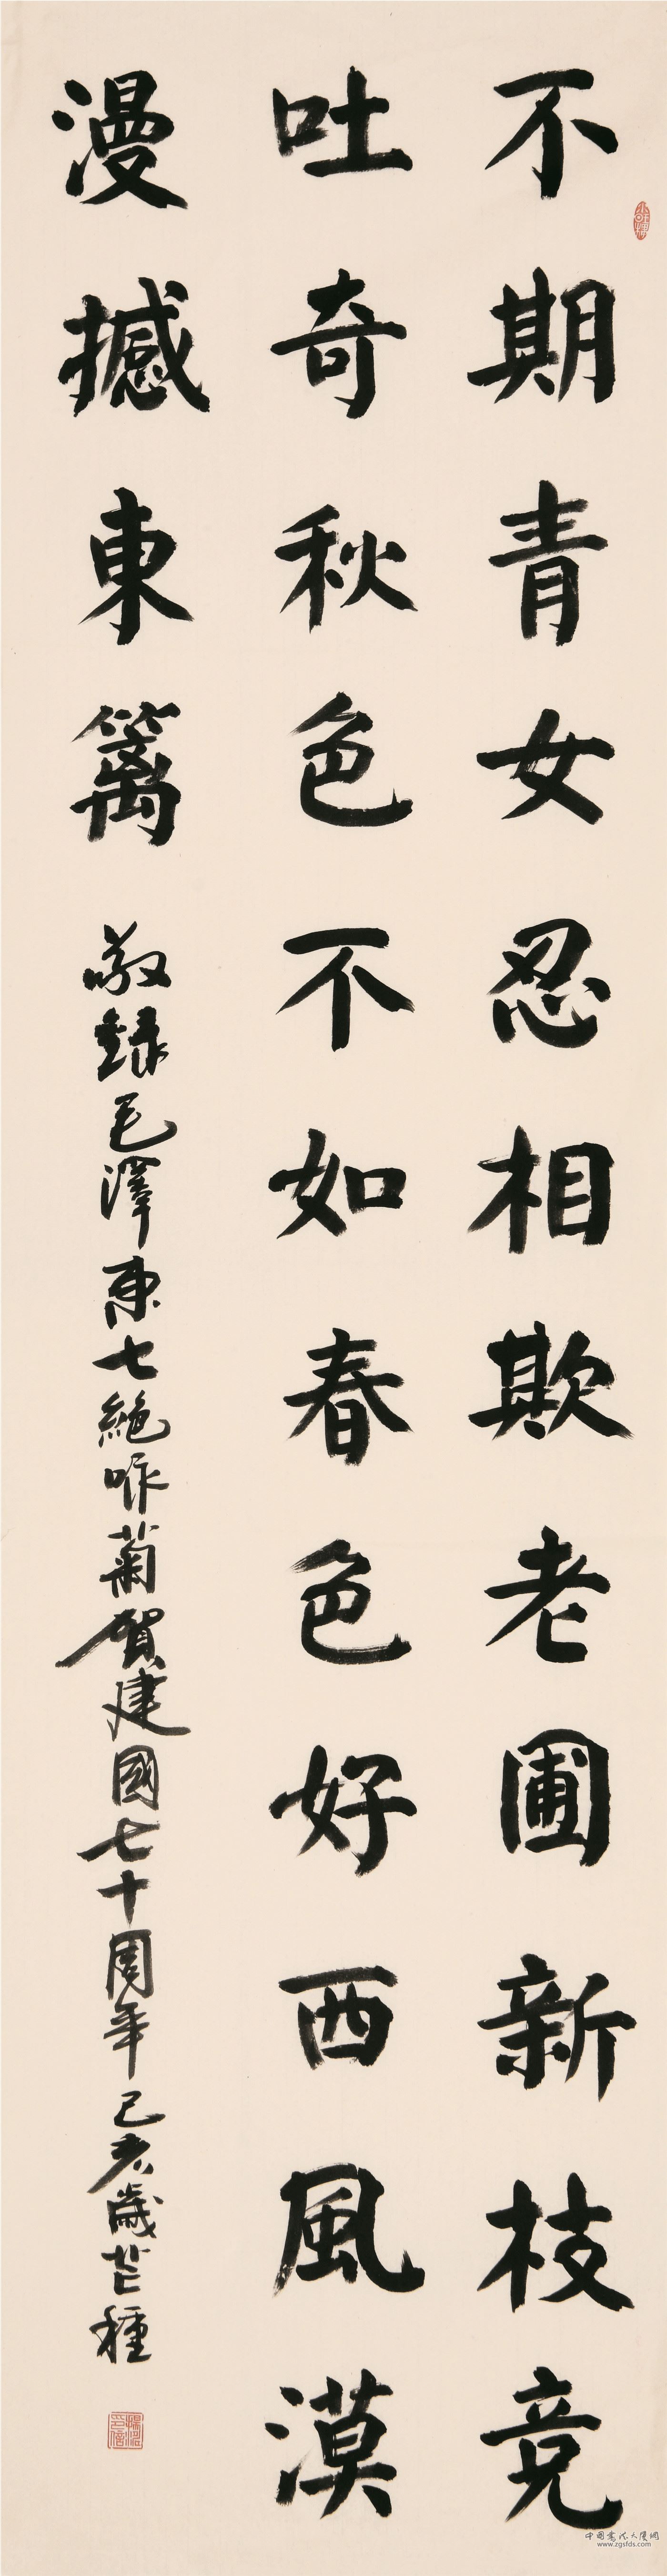 不期青女忍相欺老圃新枝竞
吐奇秋色不如春色好西風漠
漫撼東籬
敬録毛澤東七絶咏菊賀建國七十周年己亥歲芒種
中国书法大侠网
www.zgsfds.com